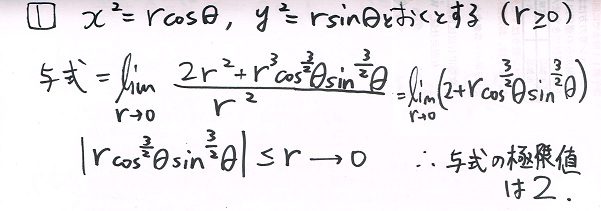 1 x²=rcosθ, y²=rsinθとおくとする (r≥0)
与式 = lim_{r→0} (2r²+r³cos^{3/2}θsin^{3/2}θ)/r² = lim_{r→0}(2+rcos^{3/2}θsin^{3/2}θ)
|rcos^{3/2}θsin^{3/2}θ| ≤ r → 0 ∴ 与式の極限値
は2.